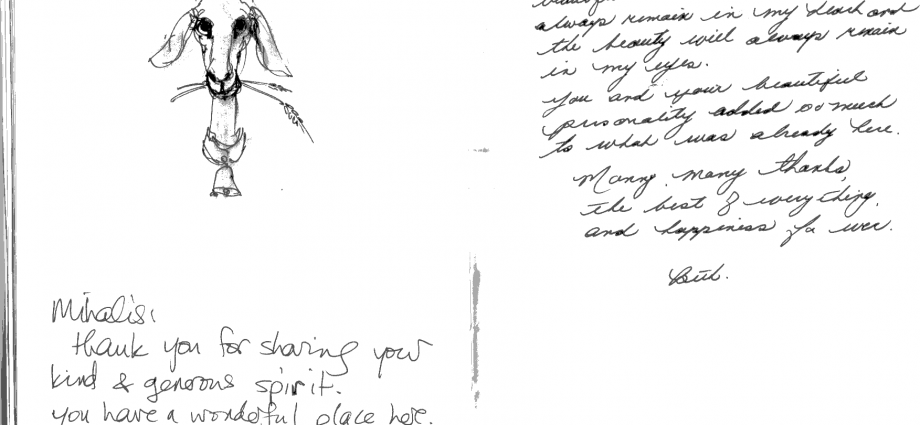 Mihalis:
thank you for sharing your
kind & generous spirit.
you have a wonderful place here.
always remain in my heart and
the beauty will always remain
in my eyes.
You and your beautiful
personality added so much
to what was already here.
Many, many thanks,
the best of everything,
and happiness for ever.
Beth.